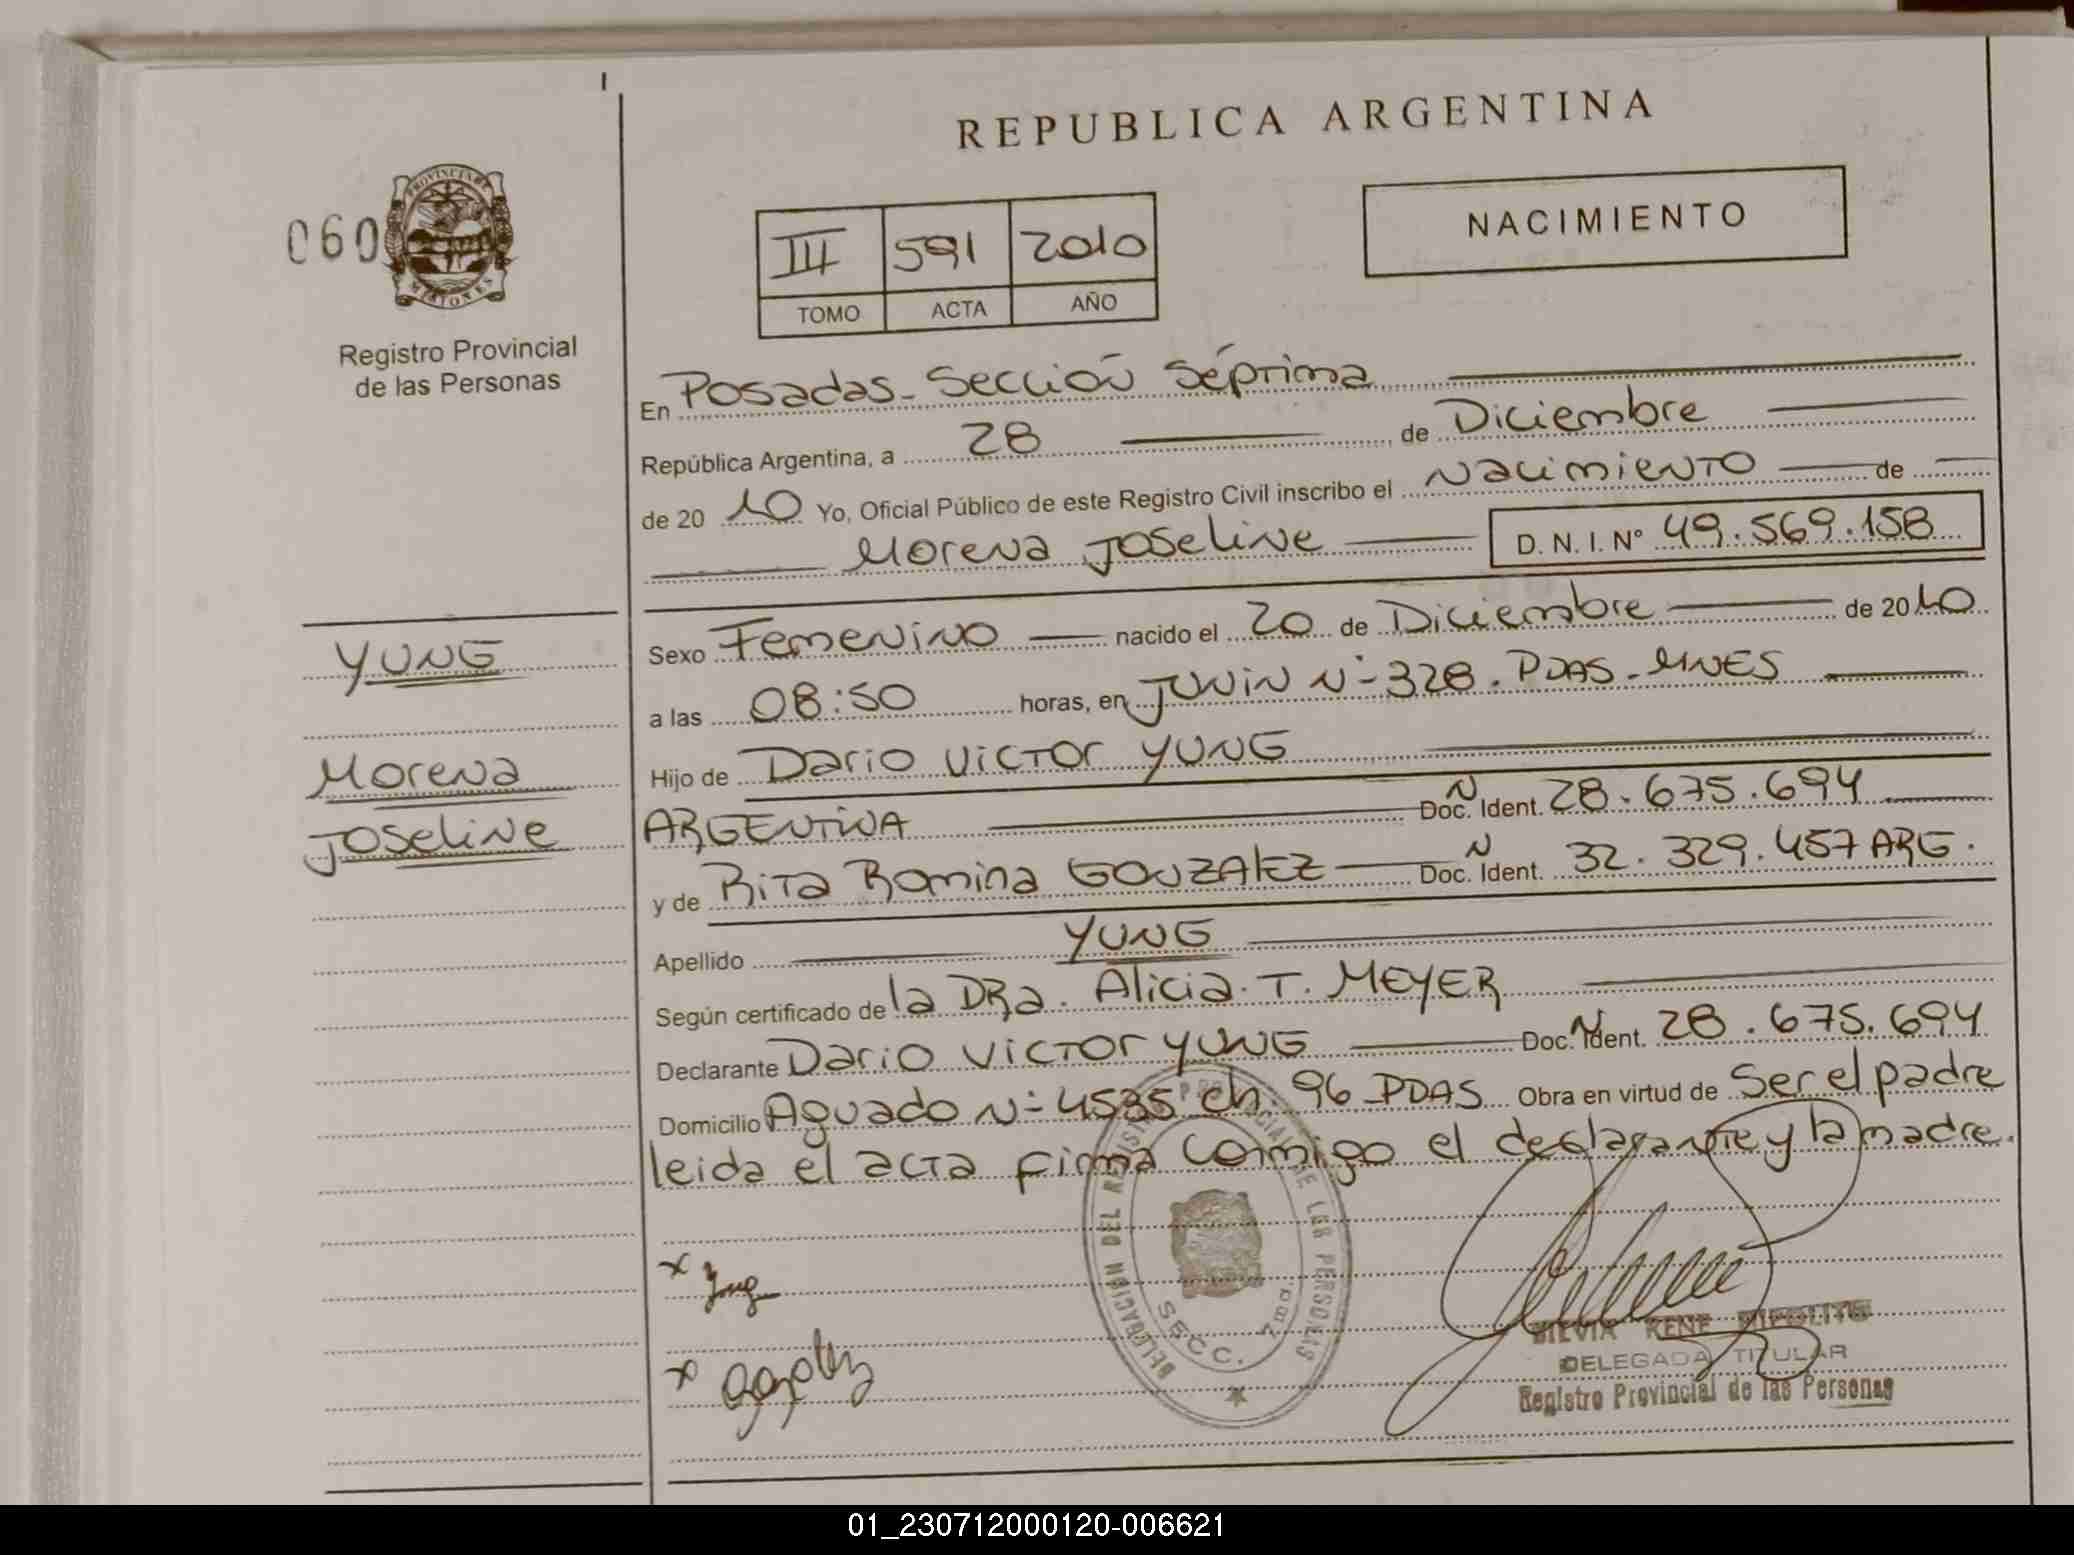 REPUBLICA ARGENTINA
060
PROVINCIA DE
MISIONES
Registro Provincial
de las Personas
III 591 2010
TOMO ACTA AÑO
NACIMIENTO
En Posadas - Sección Séptima
República Argentina, a 28 de Diciembre
de 20 10 Yo, Oficial Público de este Registro Civil inscribo el Nacimiento de
Morena Joseline D. N. I. N° 49.569.158
YUNG
Morena
Joseline
Sexo Femenino nacido el 20 de Diciembre de 2010
a las 08:50 horas, en Junin N° 328. PDAS - MNES
Hijo de Dario Victor YUNG
ARGENTINA Doc. N Ident. 28.675.694
y de Rita Romina GONZALEZ Doc. N Ident. 32.329.457 ARG.
Apellido YUNG
Según certificado de la DRa. Alicia. T. MEYER
Declarante Dario Victor YUNG Doc. N Ident. 28.675.694
Domicilio Aguado N° 4585 ch. 96 PDAS Obra en virtud de Ser el padre
leida el acta firma conmigo el declarante y la madre.
x Yung
x Gonzalez
DELEGACION DEL REGISTRO PROVINCIAL DE LAS PERSONAS
SECC. 7ma.
SILVIA RENE HIPOLITO
DELEGADA TITULAR
Registro Provincial de las Personas
01_230712000120-006621